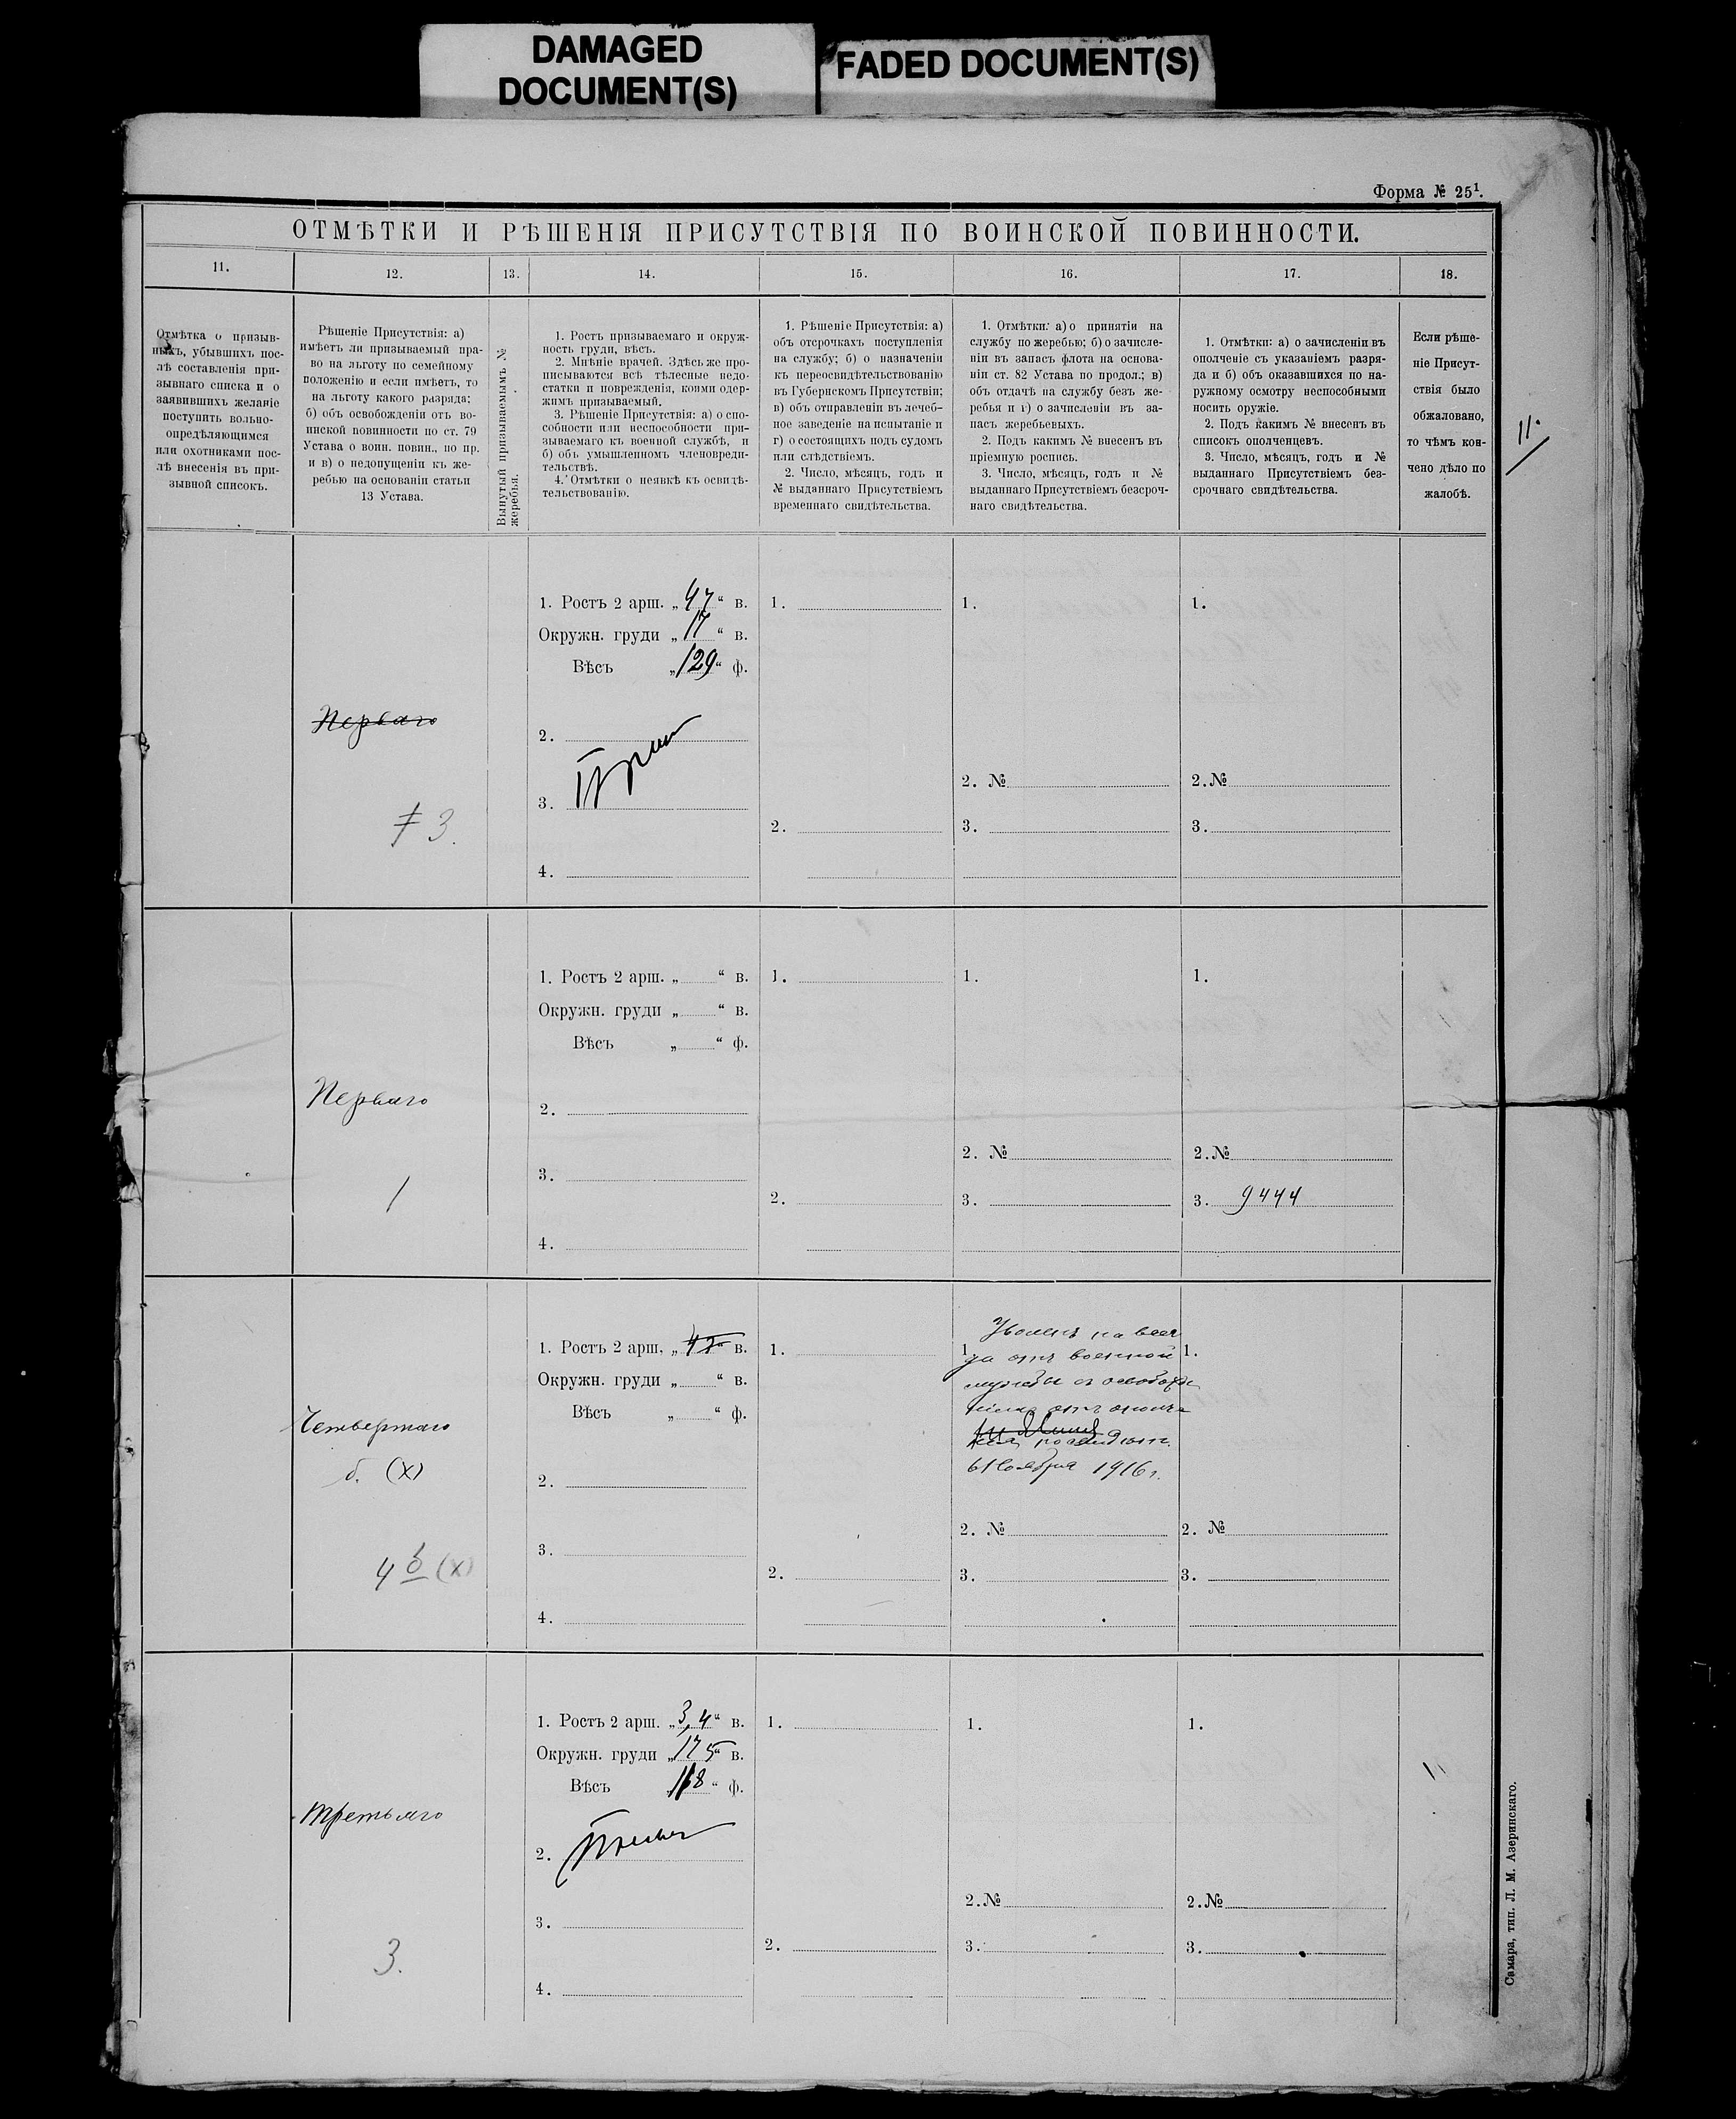 DAMAGED
DOCUMENT(S)
FADED DOCUMENT(S)
Форма № 25¹.
ОТМѢТКИ И РѢШЕНІЯ ПРИСУТСТВІЯ ПО ВОИНСКОЙ ПОВИННОСТИ.
11.
12.
13.
14.
15.
16.
17.
18.
Отмѣтка о призыв-
ныхъ, убывшихъ пос-
лѣ составленія при-
зывнаго списка и о
заявившихъ желаніе
поступить вольно-
опредѣляющимся
или охотниками пос-
лѣ внесенія въ при-
зывной списокъ.
Рѣшеніе Присутствія: а)
имѣетъ ли призываемый пра-
во на льготу по семейному
положенію и если имѣетъ, то
на льготу какого разряда;
б) объ освобожденіи отъ во-
инской повинности по ст. 79
Устава о воин. повин., по пр.
и в) о недопущеніи къ же-
ребью на основаніи статьи
13 Устава.
Вынутый призываемымъ №
жеребья.
1. Ростъ призываемаго и окруж-
ность груди, вѣсъ.
2. Мнѣніе врачей. Здѣсь же про-
писываются всѣ тѣлесные недо-
статки и поврежденія, коими одер-
жимъ призываемый.
3. Рѣшеніе Присутствія: а) о спо-
собности или неспособности при-
зываемаго къ военной службѣ, и
б) объ умышленномъ членовреди-
тельствѣ.
4. Отмѣтки о неявкѣ къ освидѣ-
тельствованію.
1. Рѣшеніе Присутствія: а)
объ отсрочкахъ поступленія
на службу; б) о назначеніи
къ переосвидѣтельствованію
въ Губернскомъ Присутствіи;
в) объ отправленіи въ лечеб-
ное заведеніе на испытаніе и
г) о состоящихъ подъ судомъ
или слѣдствіемъ.
2. Число, мѣсяцъ, годъ и
№ выданнаго Присутствіемъ
временнаго свидѣтельства.
1. Отмѣтки: а) о принятіи на
службу по жеребью; б) о зачисле-
ніи въ запасъ флота на основа-
ніи ст. 82 Устава по продол.; в)
объ отдачѣ на службу безъ же-
ребья и г) о зачисленіи въ за-
пасъ жеребьевыхъ.
2. Подъ какимъ № внесенъ въ
пріемную роспись.
3. Число, мѣсяцъ, годъ и №
выданнаго Присутствіемъ безсроч-
наго свидѣтельства.
1. Отмѣтки: а) о зачисленіи въ
ополченіе съ указаніемъ разря-
да и б) объ оказавшихся по на-
ружному осмотру неспособными
носить оружіе.
2. Подъ какимъ № внесенъ въ
списокъ ополченцевъ.
3. Число, мѣсяцъ, годъ и №
выданнаго Присутствіемъ без-
срочнаго свидѣтельства.
Если рѣше-
ніе Присут-
ствія было
обжаловано,
то чѣмъ кон-
чено дѣло по
жалобѣ.
11.
1. Ростъ 2 арш. „47“ в.
Окружн. груди „17“ в.
Вѣсъ „129“ ф.
Перваго
3.
2.
3.
4.
1.
2.
1.
2. №
3.
1.
2. №
3.
1. Ростъ 2 арш. „ “ в.
Окружн. груди „ “ в.
Вѣсъ „ “ ф.
Перваго
1
2.
3.
4.
1.
2.
1.
2. №
3.
1.
2. №
3. 9444
1. Ростъ 2 арш. „ “ в.
Окружн. груди „ “ в.
Вѣсъ „ “ ф.
Четвертаго
б. (х)
4 б (х)
2.
3.
4.
1.
2.
1. Уволенъ на всег
да отъ военной
службы съ освобожде
6 Ноября 1916 г.
2. №
3.
1.
2. №
3.
1. Ростъ 2 арш. „3,4“ в.
Окружн. груди „175“ в.
Вѣсъ „118“ ф.
третьяго
3.
2.
3.
4.
1.
2.
1.
2. №
3.
1.
2. №
3.
Самара, тип. Л. М. Азеринскаго.